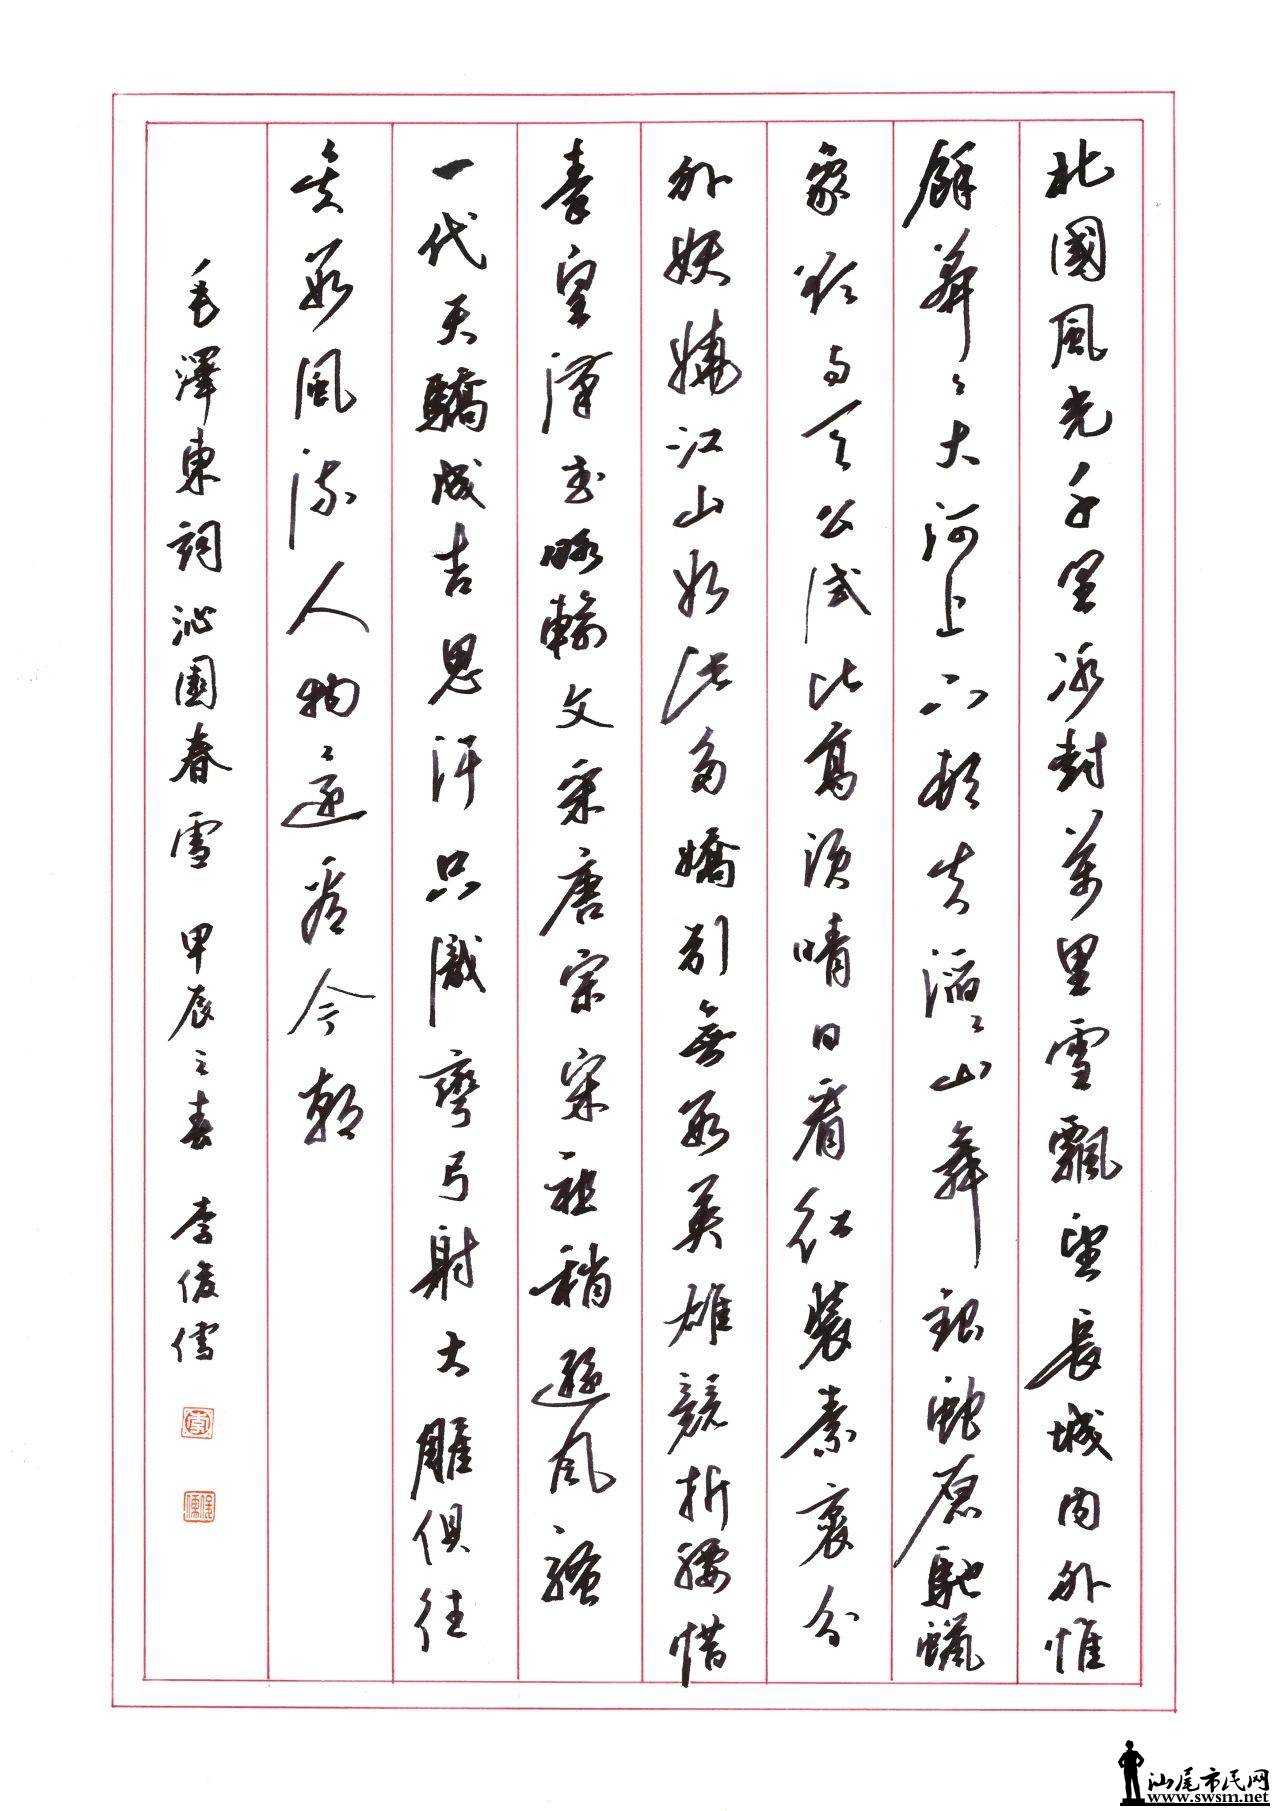 北國風光千里冰封萬里雪飄望長城內外惟
餘莽々大河上下頓失滔々山舞銀蛇原馳蠟
象欲与天公試比高須晴日看紅裝素裹分
外妖嬈江山如此多嬌引無數英雄競折腰惜
秦皇漢武略輸文采唐宗宋祖稍遜風騷
一代天驕成吉思汗只識彎弓射大雕俱往
矣數風流人物還看今朝
毛澤東詞沁園春雪 甲辰之春 李俊儒
李
俊儒
汕尾市民网
www.swsm.net